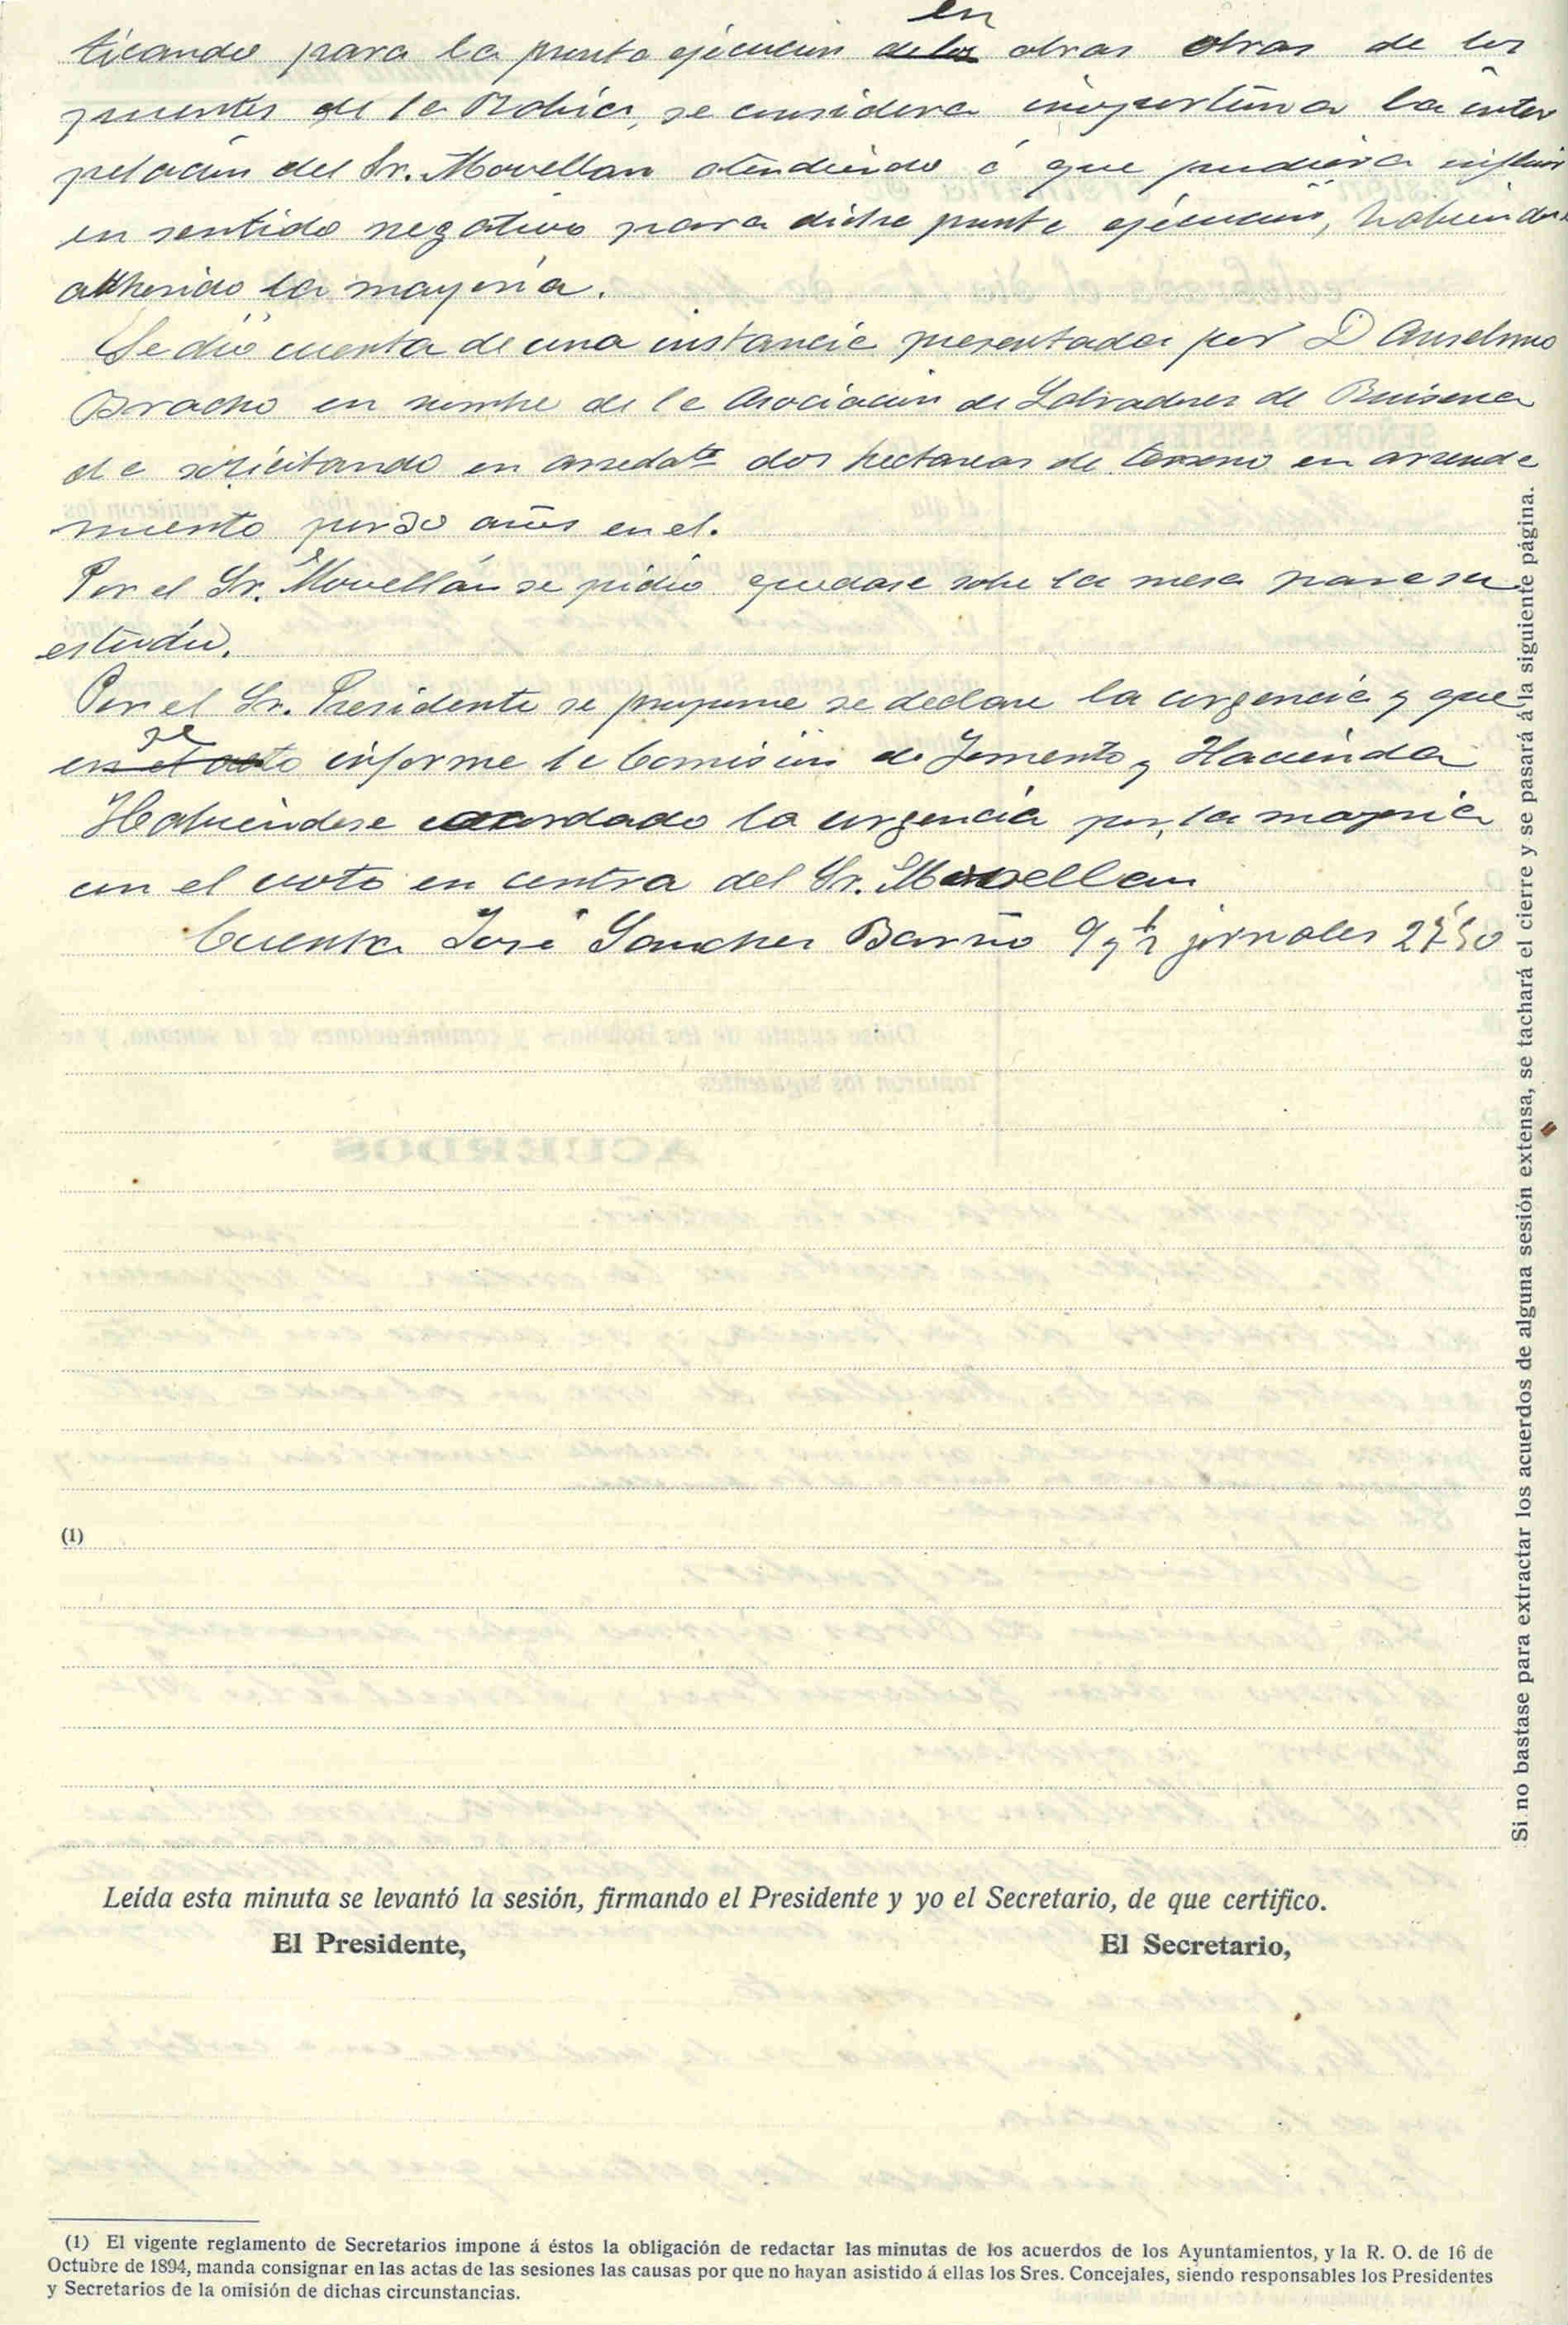 en
ticando para la pronta ejecucion de las obras obras de los
puentes de la Rabia, se considera inoportuna la inter
pelacion del Sr. Movellan atendiendo á que pudiera influir
en sentido negativo para dicha pronta ejecucion, habiendose
adherido la mayoria.
Se dió cuenta de una instancia presentada por D Anselmo
Bracho en nombre de la Asociacion de Labradores de Ruiseña
da solicitando en arredato dos hectareas de terreno en arrenda
miento por 30 años en el.
Por el Sr. Movellán se pidio quedase sobre la mesa para su
estudio.
Por el Sr. Presidente se propone se declare la urgencia y que
se
en el acto informe la Comision de Fomento y Hacienda
Habiendose acordado la urgencia por la mayoria
con el voto en contra del Sr. Movellan
Cuenta José Sanchez Barrio 9 y ½ jornales 27'50
(1)
Leída esta minuta se levantó la sesión, firmando el Presidente y yo el Secretario, de que certifico.
El Presidente,
El Secretario,
(1) El vigente reglamento de Secretarios impone á éstos la obligación de redactar las minutas de los acuerdos de los Ayuntamientos, y la R. O. de 16 de
Octubre de 1894, manda consignar en las actas de las sesiones las causas por que no hayan asistido á ellas los Sres. Concejales, siendo responsables los Presidentes
y Secretarios de la omisión de dichas circunstancias.
Si no bastase para extractar los acuerdos de alguna sesión extensa, se tachará el cierre y se pasará á la siguiente página.